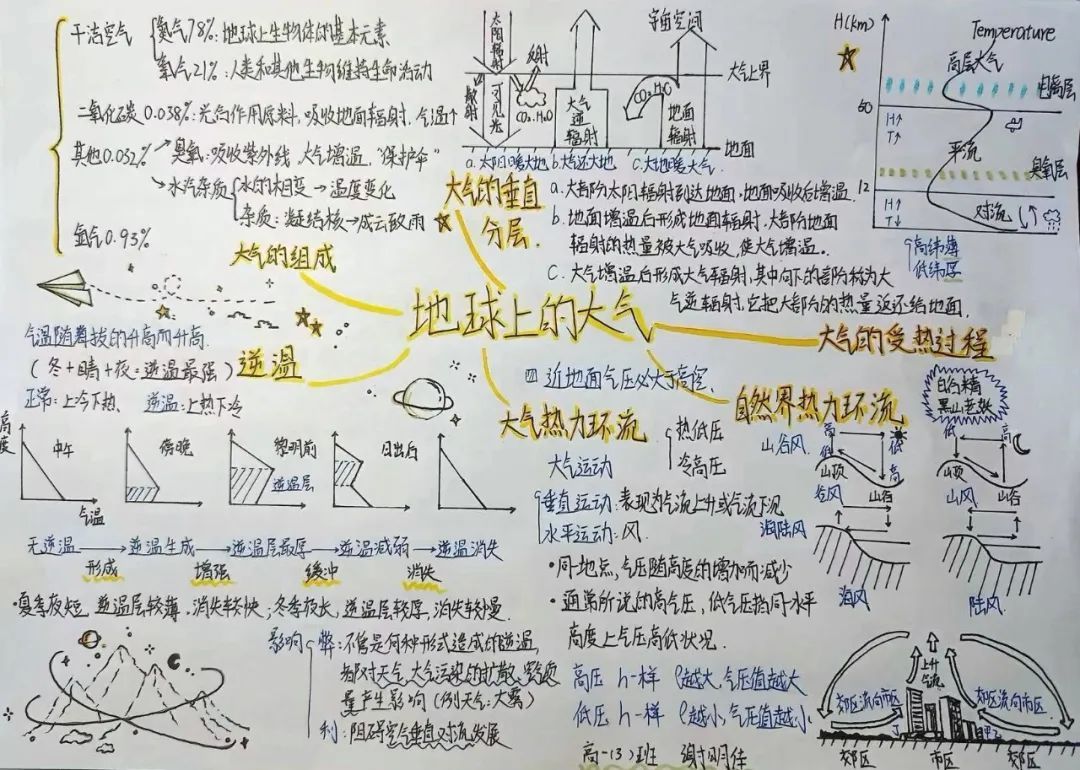 干洁空气
氮气78%:地球上生物体的基本元素
氧气21%:人类和其他生物维持生命活动
二氧化碳0.038%:光合作用原料,吸收地面辐射,气温↑
其他0.032%
臭氧:吸收紫外线,大气增温,"保护伞"
水汽杂质
水的相变→温度变化
杂质:凝结核→成云致雨
氩气0.93%
大气的组成
太阳辐射
散射
可见光
反射
CO₂·H₂O
大气逆辐射
宇宙空间
CO₂ H₂O
地面辐射
大气上界
地面
a.太阳暖大地 b.大气还大地 c.大地暖大气
大气的垂直
分层.
a.大部分太阳辐射到达地面,地面吸收后增温
b.地面增温后形成地面辐射,大部分地面
辐射的热量被大气吸收,使大气增温.
C.大气增温后形成大气辐射,其中向下的部分称为大
气逆辐射,它把大部分的热量返还给地面.
H(km)
Temperature
高层大气
电离层
60
H↑
T↑
平流
臭氧层
12
H↑
T↓
对流
高纬薄
低纬厚
地球上的大气
大气的受热过程
气温随海拔的升高而升高.
(冬+晴+夜=逆温最强)
逆温
正常:上冷下热. 逆温:上热下冷
高度
中午
傍晚
黎明前
逆温层
日出后
气温
无逆温→逆温生成→逆温层最厚→逆温减弱→逆温消失
形成 增强 缓冲 消失
·夏季夜短,逆温层较薄,消失较快;冬季夜长,逆温层较厚,消失较慢.
影响
弊:不管是何种形式造成的逆温,
都对天气,大气污染的扩散,
量产生影响(例天气:大雾)
利:阻碍空气垂直对流发展
四 近地面气压必大于高空.
大气热力环流
热低压
冷高压
大气运动
垂直运动:表现为气流上升或气流下沉
水平运动:风
·同一地点,气压随高度的增加而减少
·通常所说的高气压,低气压指同一水平
高度上气压高低状况.
高压 h一样 ρ越大,气压值越大
低压 h一样 ρ越小,气压值越小
高一(3)班
自然界热力环流
山谷风
高
低
低
高
山顶
谷风
山谷
白谷精
黑山老妖
低
高
山顶
山风
山谷
海陆风
海风
陆风
上升气流
郊区流向市区
郊区流向市区
郊区
市区
郊区